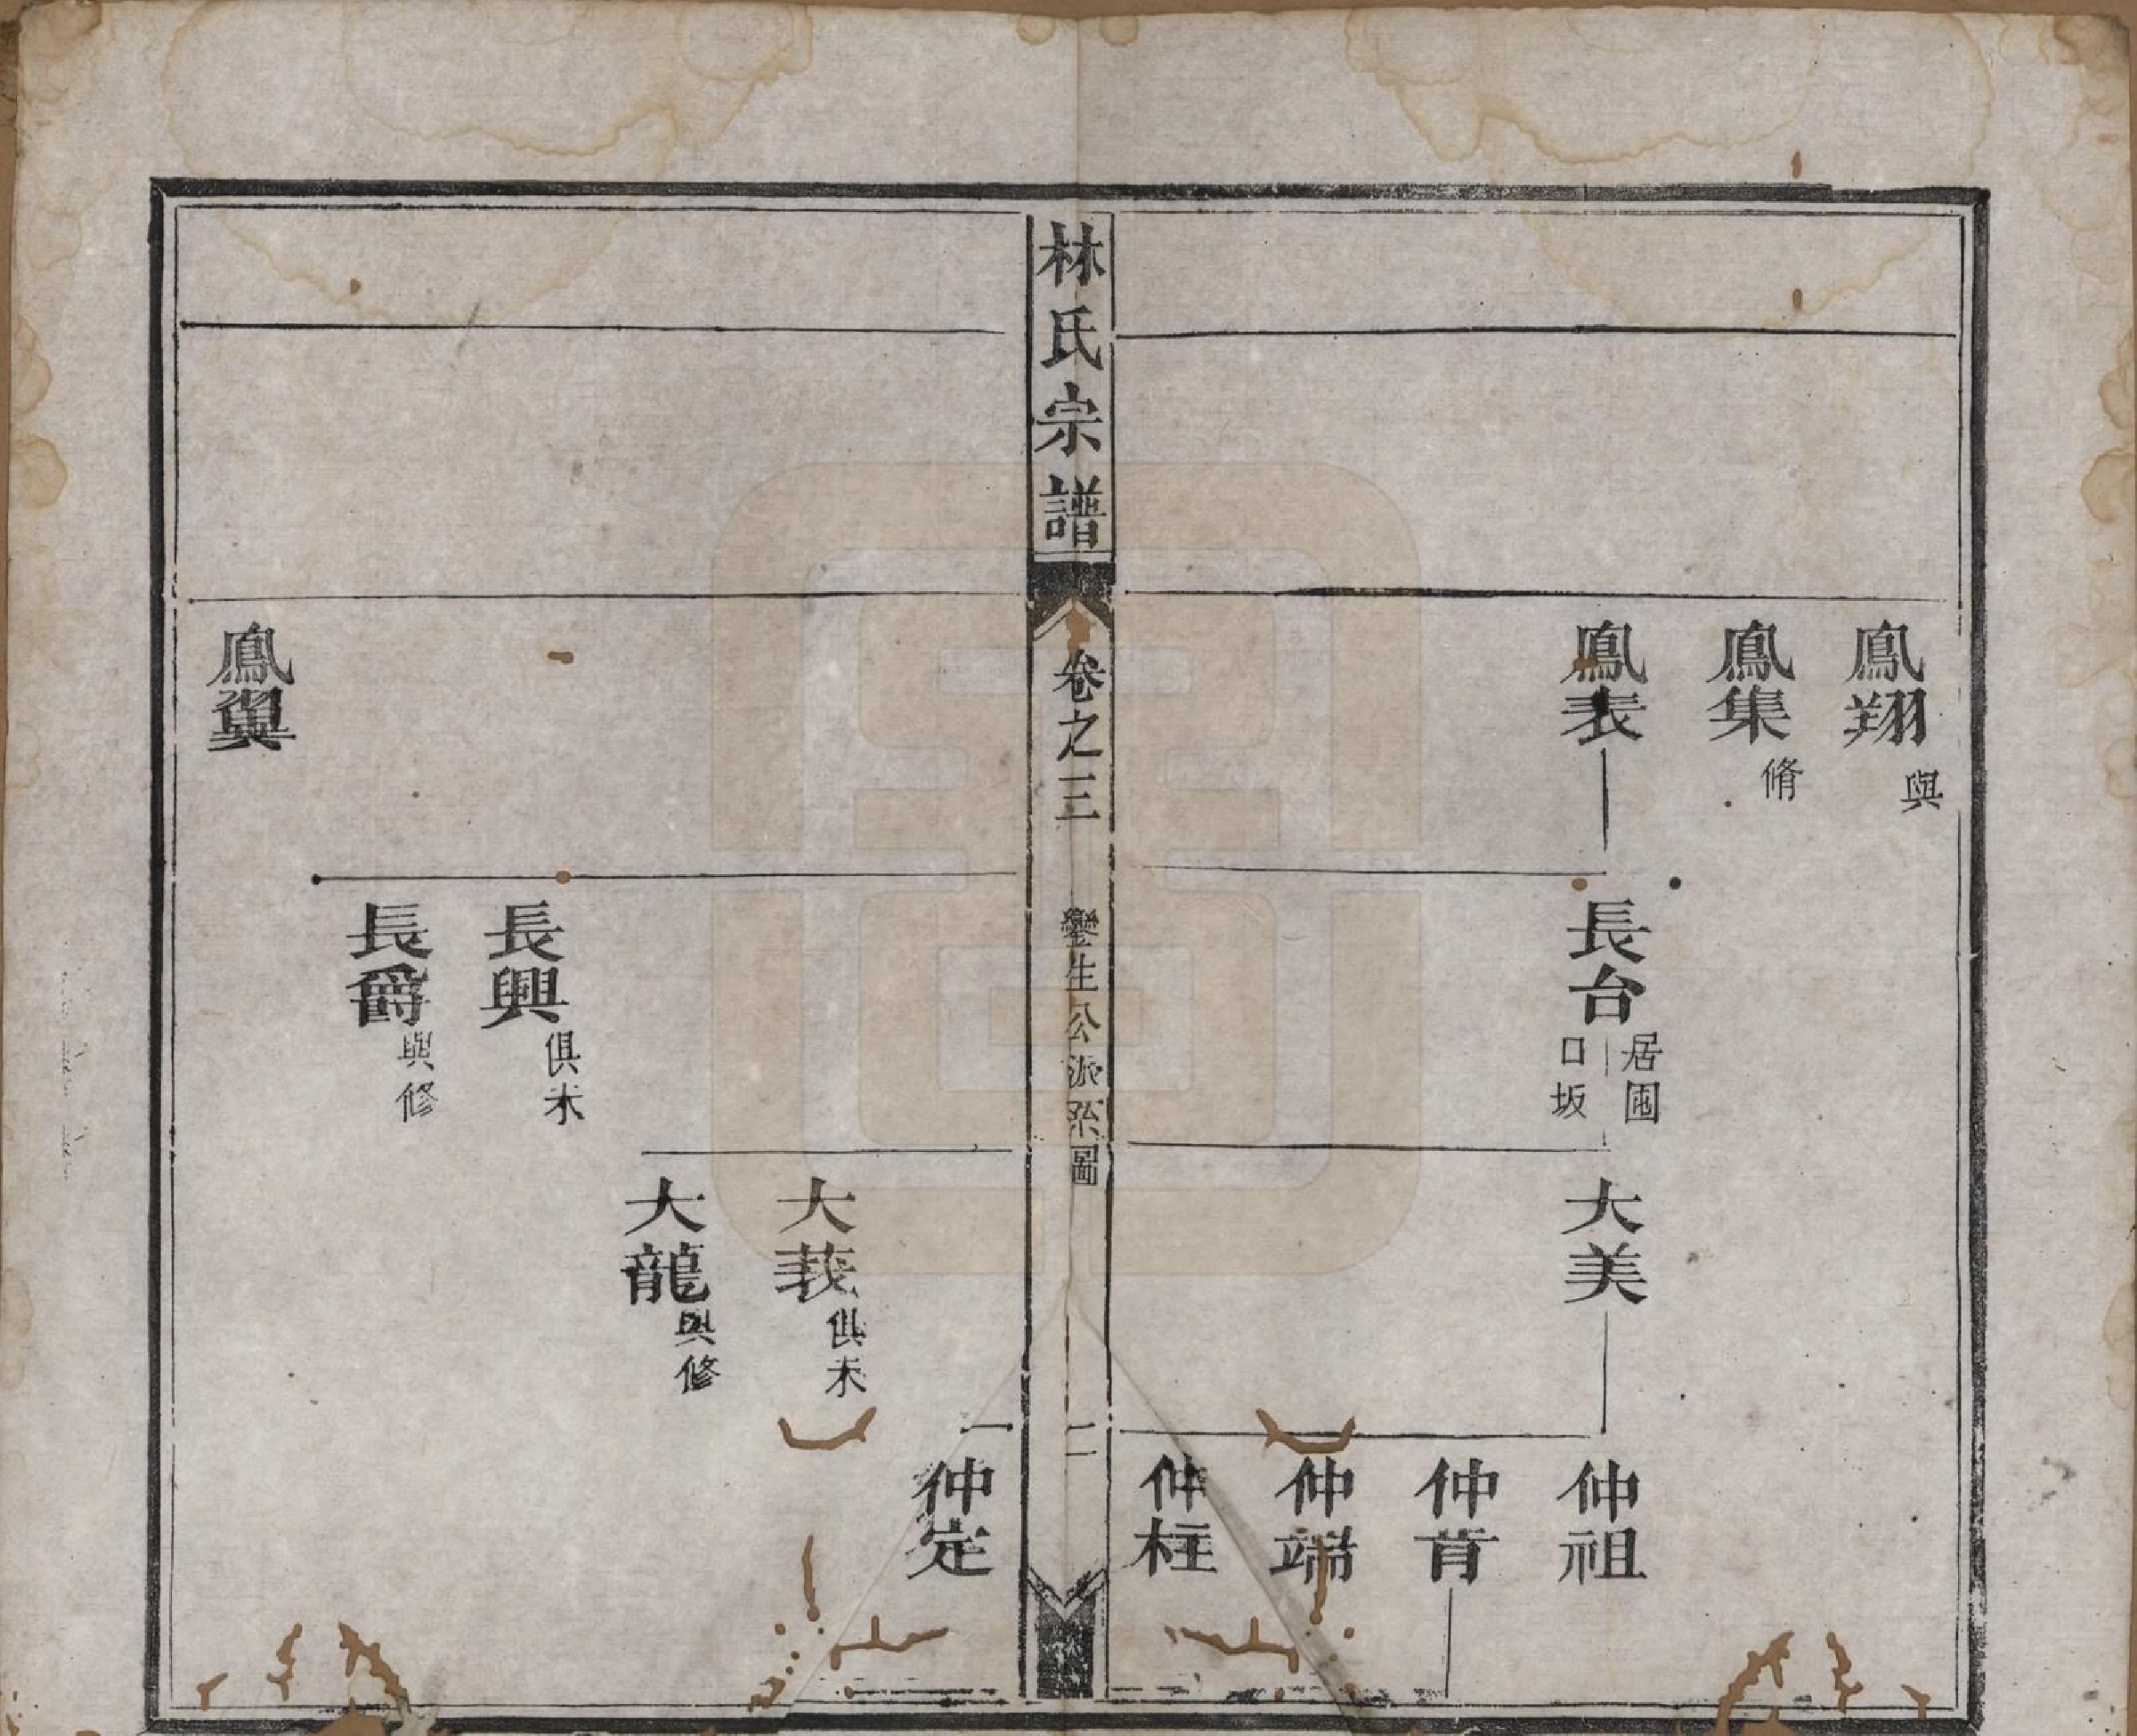 鳳翔
與
鳳集
脩
鳳表
長台
居囤
口坂
大美
仲祖
仲肯
仲端
仲柱
林氏宗譜
卷之三
鑾生公派系圖
二
仲定
大莪
俱未
大龍
與修
長興
俱未
長爵
與修
鳳翼